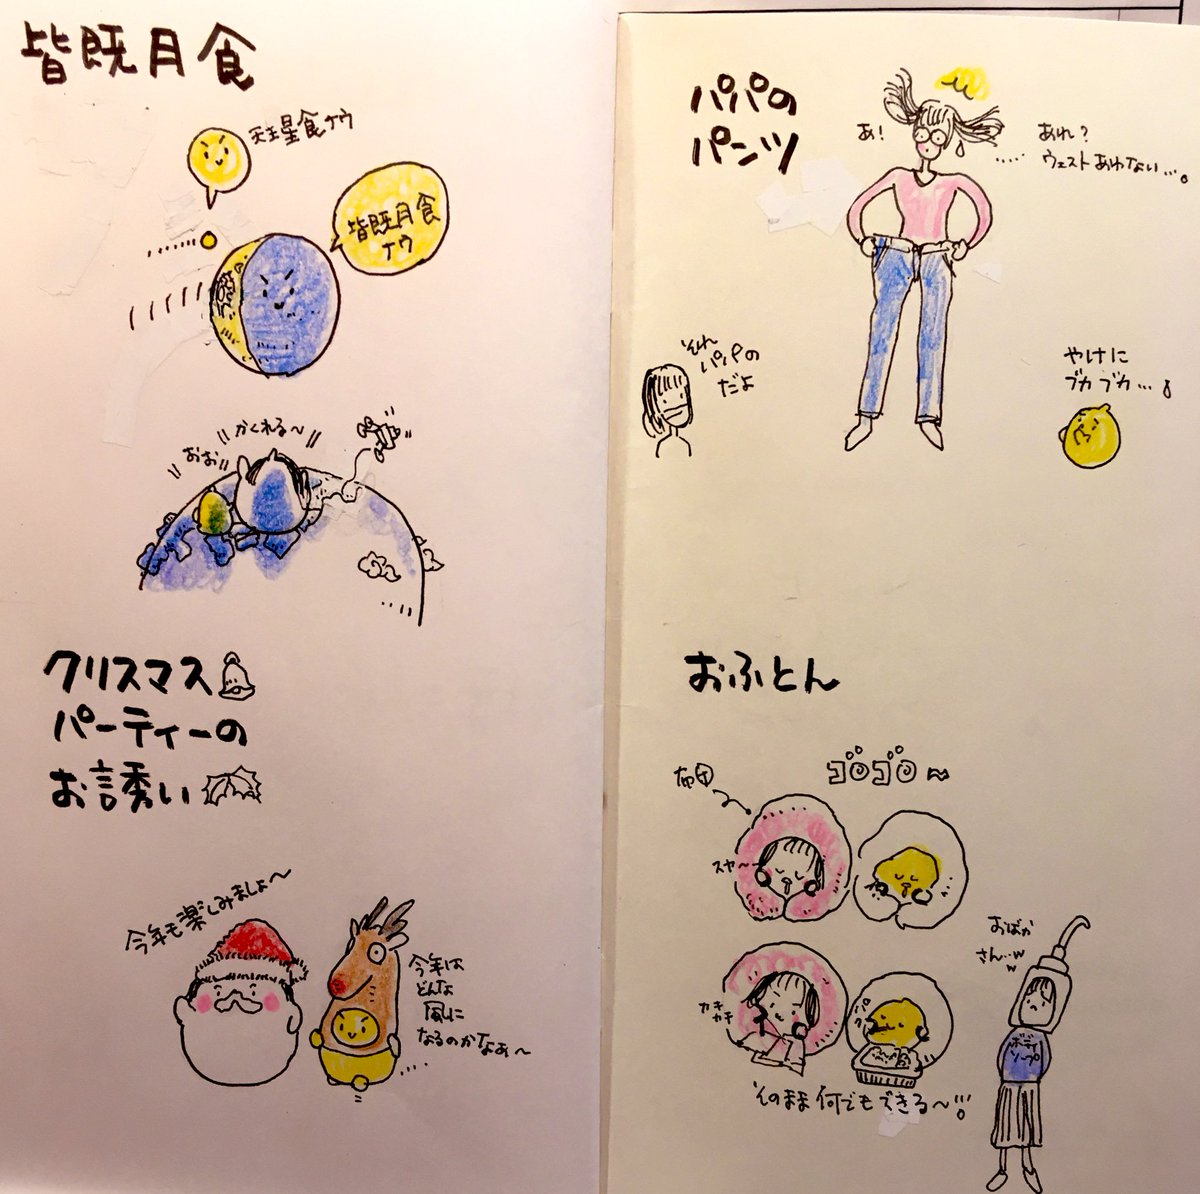 皆既月食
天王星食ナウ
皆既月食
ナウ
かくれる〜
おお
クリスマス
パーティーの
お誘い
今年も楽しみましょ〜
今年は
どんな
風に
なるのかなぁ〜
....
パパの
パンツ
あ!
あれ?
ウェストあわない...。
それ
パパの
だよ
やけに
ブカブカ...
おふとん
ゴロゴロ〜
スヤ〜
カキ
カキ
そのまま何でもできる〜!!
おばか
さん..w
w
ボディ
ソープ